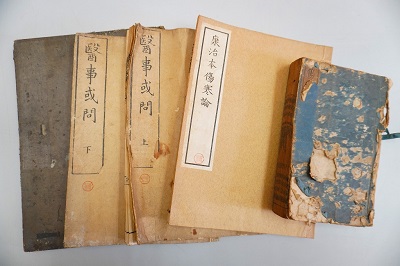 醫事或問
下
醫事或問
上
康治本傷寒論